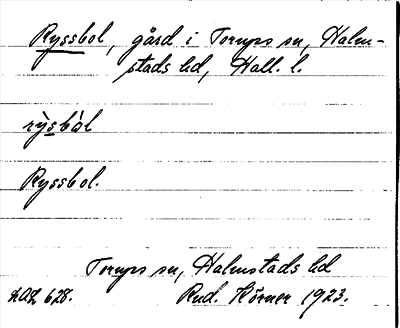 Ryssbol, gård i Torups sn, Halm-
stads hd, Hall. l.
rỳsbòl
Ryssbol.
Torups sn, Halmstads hd
LAL 628. Rud. Körner 1923.